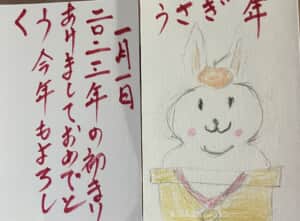 一月一日
二〇二三年の初まり
あけましておめでと
う今年もよろし
く
うさぎ年